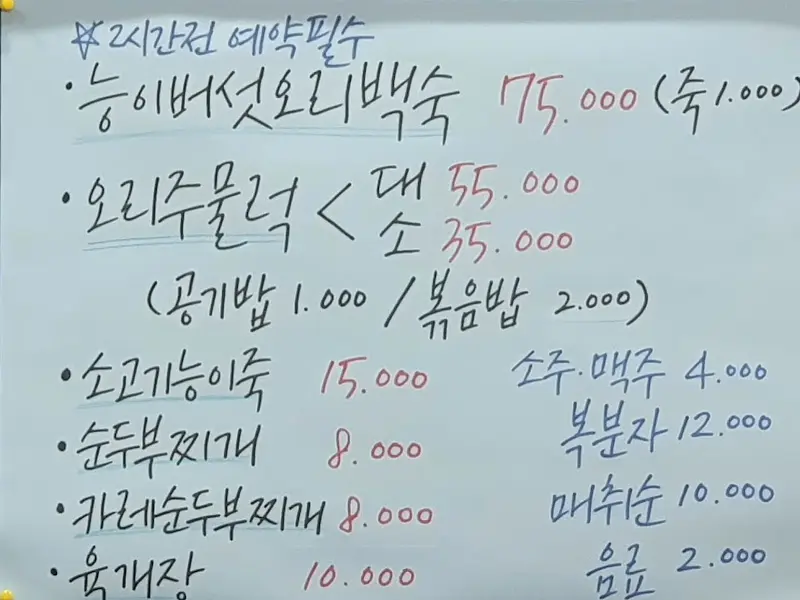 ☆ 2시간전 예약필수
• 능이버섯오리백숙 75.000 (죽 1.000)
• 오리주물럭 < 대 55.000
소 35.000
(공기밥 1.000 / 볶음밥 2.000)
• 소고기능이죽 15.000
• 순두부찌개 8.000
• 카레순두부찌개 8.000
• 육개장 10.000
소주·맥주 4.000
복분자 12.000
매취순 10.000
음료 2.000